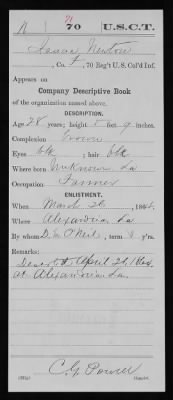 N 70 U.S.C.T.
Isaac Newton
Co. F, 70 Reg't U.S. Col'd Inf.
Appears on
Company Descriptive Book
of the organization named above.
DESCRIPTION.
Age 28 years; height 5 feet 9 inches.
Complexion Brown
Eyes blk; hair blk
Where born unknown, La
Occupation Farmer
ENLISTMENT.
When March 26, 1864.
Where Alexandria La
By whom D. M. O'Neil; term 3 y'rs.
Remarks:
April 26, 1864
at Alexandria La.
C. G. Power
Copyist.